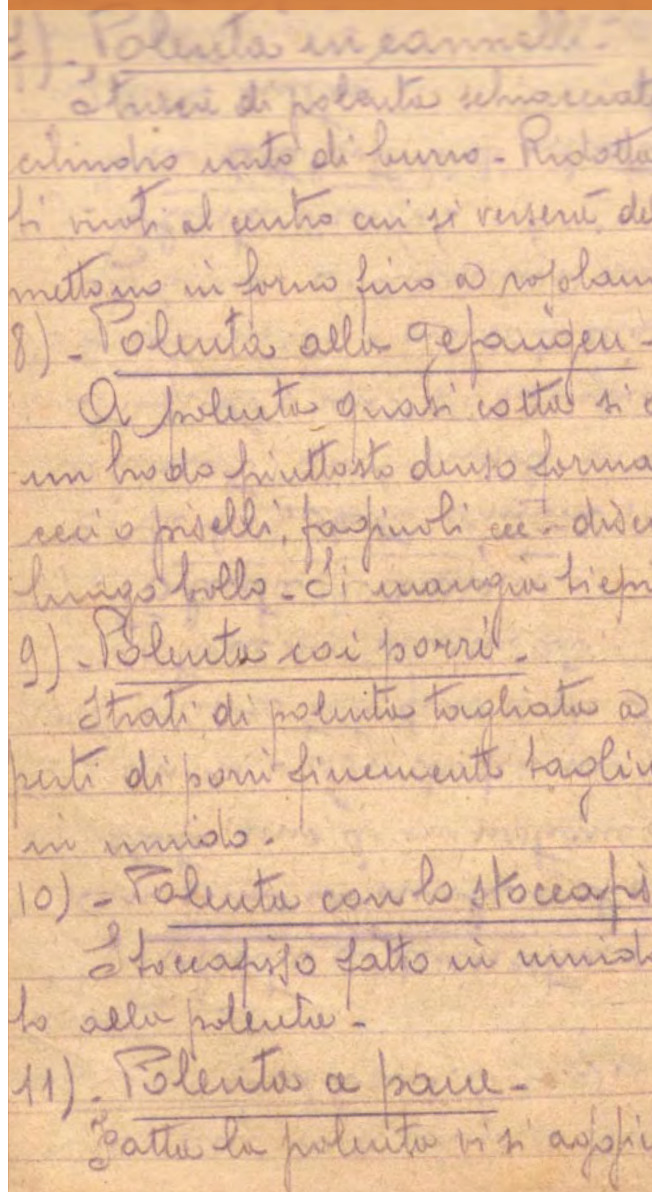 7) - Polenta in cannelli -
Strisce di polenta schiacciat
cilindro unto di burro - Ridotta
ti vuoti al centro cui si verserà de
mettono in forno fino a rosolam
8) - Polenta alla gefangen -
A polenta quasi cotta si
un brodo piuttosto denso forma
ceci o piselli, fagiuoli ecc -
lungo bollo - Si mangia tiepi
9) - Polenta coi porri -
Strati di polenta tagliata a
perti di porri finemente taglia
in umido -
10) - Polenta con lo stoccafis
Stoccafisso fatto in umido
to alla polenta -
11) - Polenta a pane -
Fatta la polenta vi si aggiu